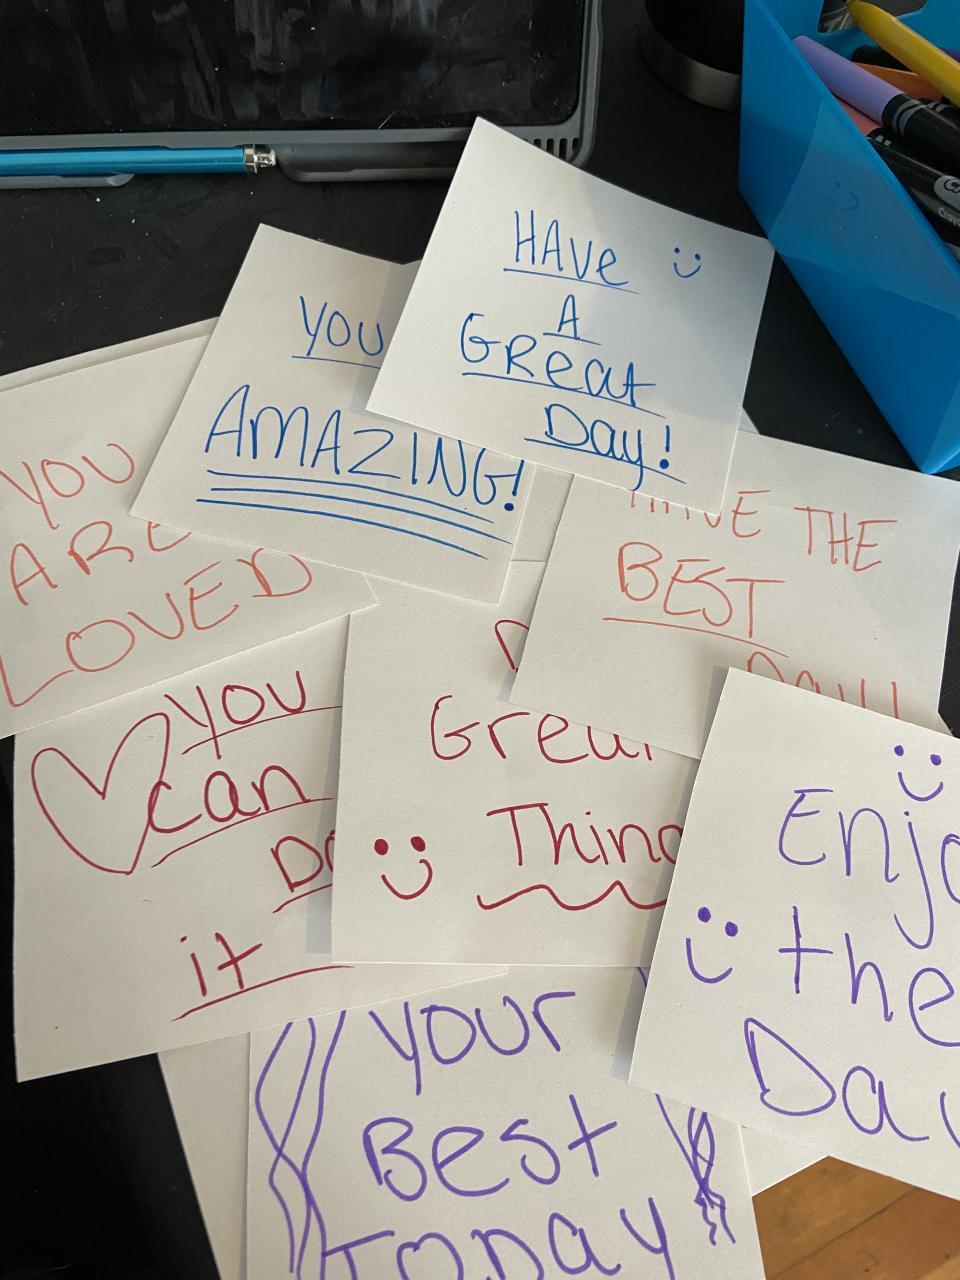 HAve
A
GReat
Day!
YOU
AMAZING!
YOU
ARE
LOVED
HAVE THE
BEST
DAY!!
you
can
Do
it
Great
Thing
Enjo
the
Day
Your
Best
Today